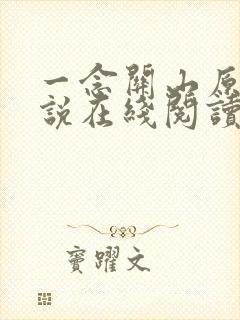 一念關山原
說在綫閱讀
竇躍文